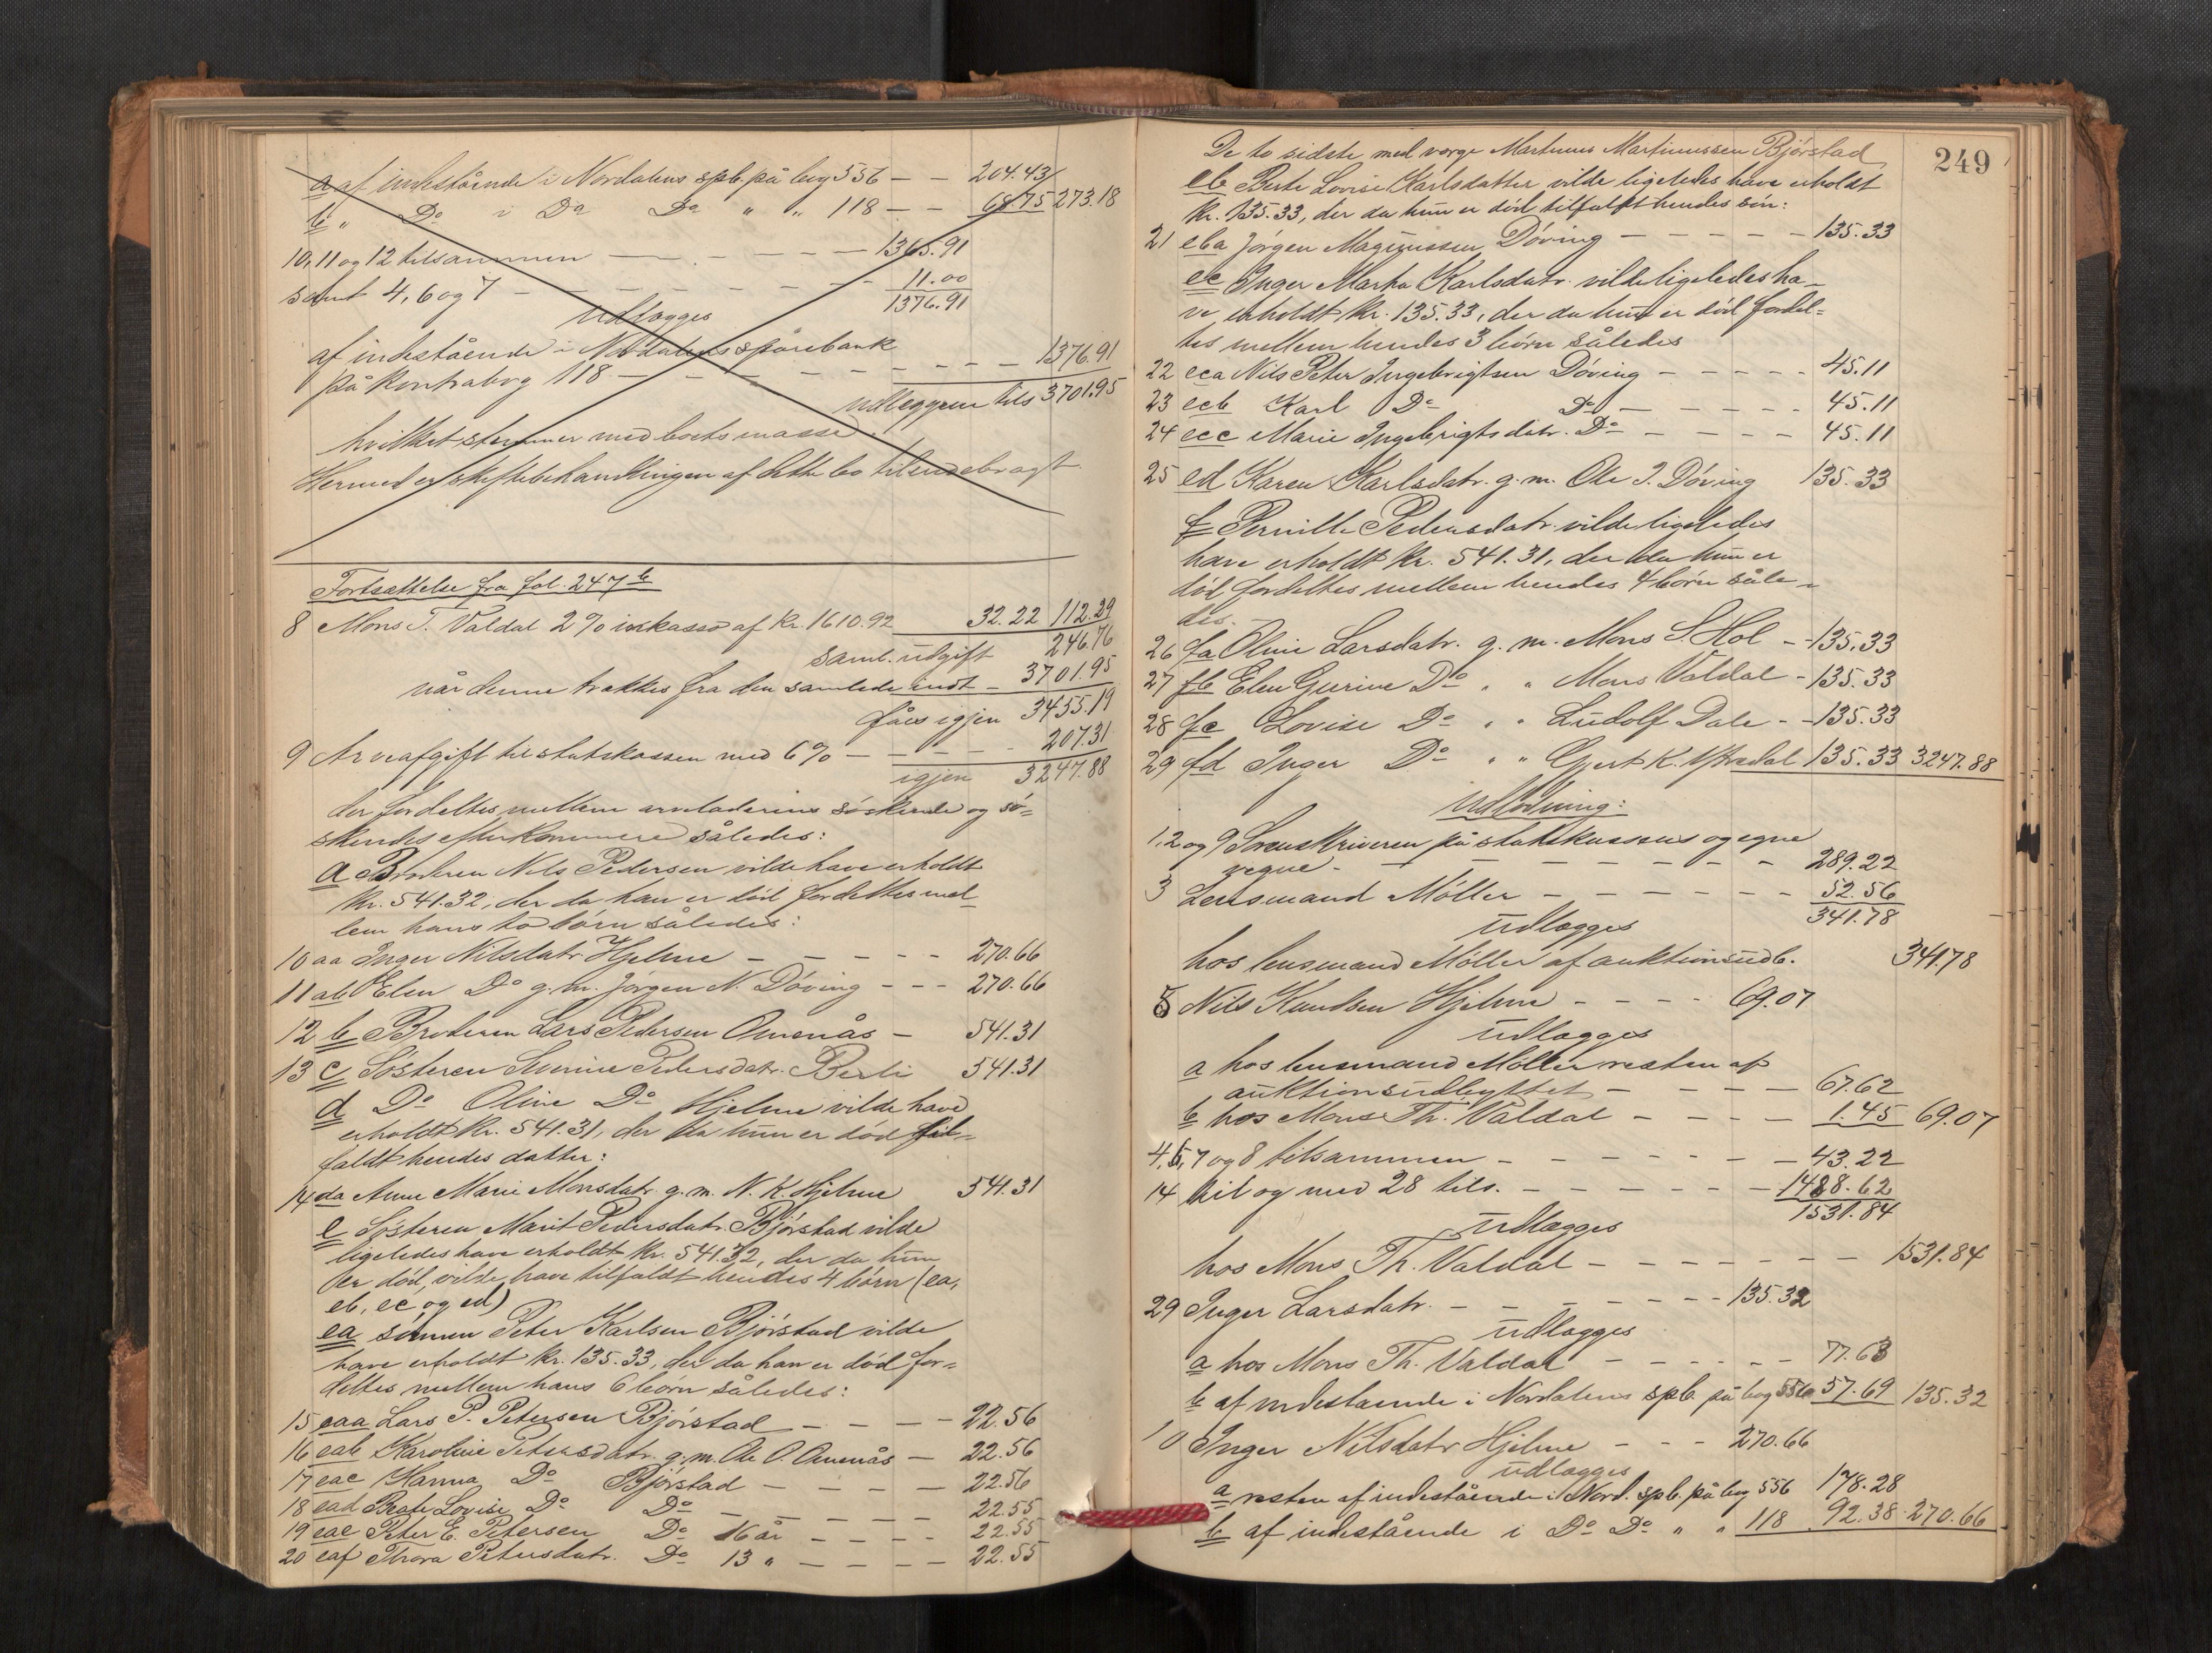 a af indestående i Nordalens spb. på bog 556 — — 204.43
b " Do i Do Do " " 118 — — 68.75 273.18
10, 11 og 12 tilsammen — — — — 1365.91
samt 4, 6 og 7 — — — — 11.00
1376.91
udlægges
af indestående i Nordalens sparebank
på kontrabog 118 — — — — — — 1376.91
udlæggene tils 3701.95
hvilket stemmer med boets masse.
Hermed er skiftebehandlingen af dette bo tilendebragt.
Fortsættelse fra fol. 247 b
8 Mons T. Valdal 2 % inkasso af kr. 1610.92 32.22 112.29
saml. udgift 246.76
når denne trækkes fra den samlede indt — 3701.95
fåes igjen 3455.19
9 Arveafgift til statskassen med 6 % — — — — 207.31
igjen 3247.88
der fordeltes mellem arveladerens söskende og sö=
skendes efterkommere således:
a Broderen Nils Pedersen vilde have erholdt
kr. 541.32, der da han er död fordeltes mel
lem hans to börn således:
10 aa Inger Nilsdatr Hjelme — — — — 270.66
11 ab Elen Do g. m. Jörgen N. Döving — — — 270.66
12 b Broderen Lars Pedersen Omenås — 541.31
13 c Sösteren Severine Pedersdatr. Berli 541.31
d Do Oline Do Hjelme vilde have
erholdt kr. 541.31, der da hun er död til=
faldt hendes datter:
14 da Anne Marie Monsdatr. g. m. N. K. Hjelme 541.31
e Sösteren Marit Pedersdatr. Bjørstad vilde
ligeledes have erholdt kr. 541.32, der da hun
er död, vilde have tilfaldt hendes 4 börn (ea,
eb, ec og ed)
ea sönnen Peter Karlsen Bjørstad vilde
have erholdt kr. 135.33, der da han er död for=
deltes mellem hans 6 börn således:
15 eaa Lars P. Petersen Bjørstad — — — — 22.56
16 eab Karoline Petersdatr. g. m. Ole O. Omenås — 22.56
17 eac Hanna Do Bjørstad — — — — 22.56
18 ead Beate Lovise Do Do — — — — 22.55
19 eae Peter E. Petersen Do 16 år — — — 22.55
20 eaf Thora Petersdatr. Do 13 " — — — — 22.55
249
De to sidste med værge Martinus Martinussen Bjørstad
eb Berte Lovise Karlsdatter vilde ligeledes have erholdt
kr. 135.33, der da hun er död tilfaldt hendes sön:
21 eba Jörgen Magnussen Döving — — — — — 135.33
ec Inger Marta Karlsdatr. vilde ligeledes ha-
ve erholdt kr. 135.33, der da hun er död fordel=
tes mellem hendes 3 börn således
22 eca Nils Peter Ingebrigtsen Döving — — — — — 45.11
23 ecb Karl Do Do — — — — — 45.11
24 ecc Marie Ingebrigtsdatr. Do — — — — 45.11
25 ed Karen Karlsdatr. g. m. Ole J. Döving 135.33
f Pernille Pedersdatr. vilde ligeledes
have erholdt kr. 541.31, der da hun er
död fordeltes mellem hendes 4 börn såle=
des.—
26 fa Oline Larsdatr. g. m. Mons S. Hol — — 135.33
27 fb Elen Gurine Do " " Mons Valdal — 135.33
28 fc Lovise Do " " Ludolf Dale — — 135.33
29 fd Inger Do " " Gjert K. Ytredal 135.33 3247.88
Udlodning:
1, 2 og 9 Sorenskriveren på statskassens og egne
vegne — — — — — — — 289.22
3 Lensmand Möller — — — — — — 52.56
341.78
udlægges
hos lensmand Möller af auktionsudb. 341.78
5 Nils Knudsen Hjelme — — — — 69.07
udlægges
a hos lensmand Möller resten af
auktionsudbyttet — — — — 67.62
b hos Mons Th. Valdal — — — — 1.45 69.07
4, 6, 7 og 8 tilsammen — — — — — — 43.22
14 til og med 28 tils. — — — — — — 1488.62
1531.84
udlægges
hos Mons Th. Valdal — — — — — — — 1531.84
29 Inger Larsdatr. — — — — — — — 135.32
udlægges
a hos Mons Th. Valdal — — — — — 77.63
b af indestående i Nordalens spb. på bog 556 57.69 135.32
10 Inger Nilsdatr Hjelme — — — 270.66
udlægges
a resten af indestående i Nord. spb. på bog 556 178.28
b af indestående i Do Do " " 118 92.38 270.66